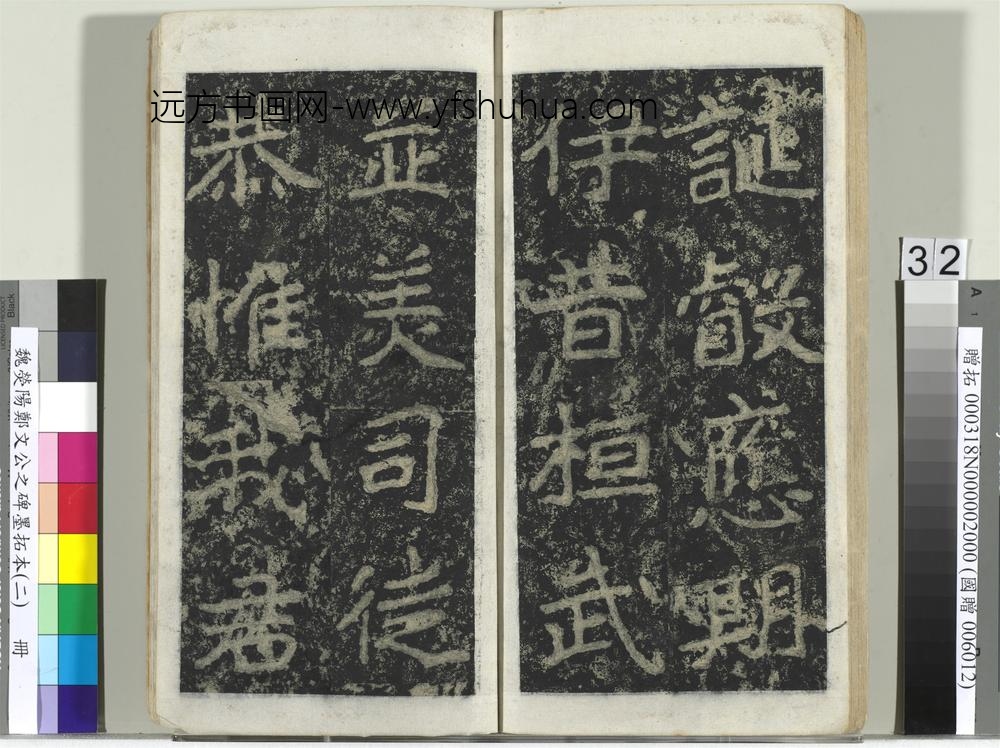 远方书画网-www.yfshuhua.com
誕叡應期
伊昔桓武
並美司徒
恭惟我君
32
贈拓 000318N000002000(國贈 006012)
魏滎陽鄭文公之碑墨拓本(二) 冊
Black
A
1